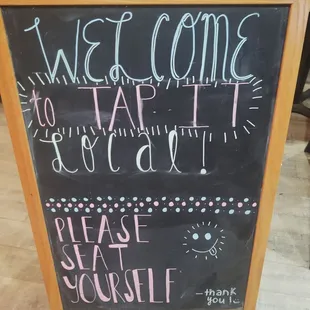 WELCOME
to TAP IT
Local!
PLEASE
SEAT
YOURSELF
-thank
you!